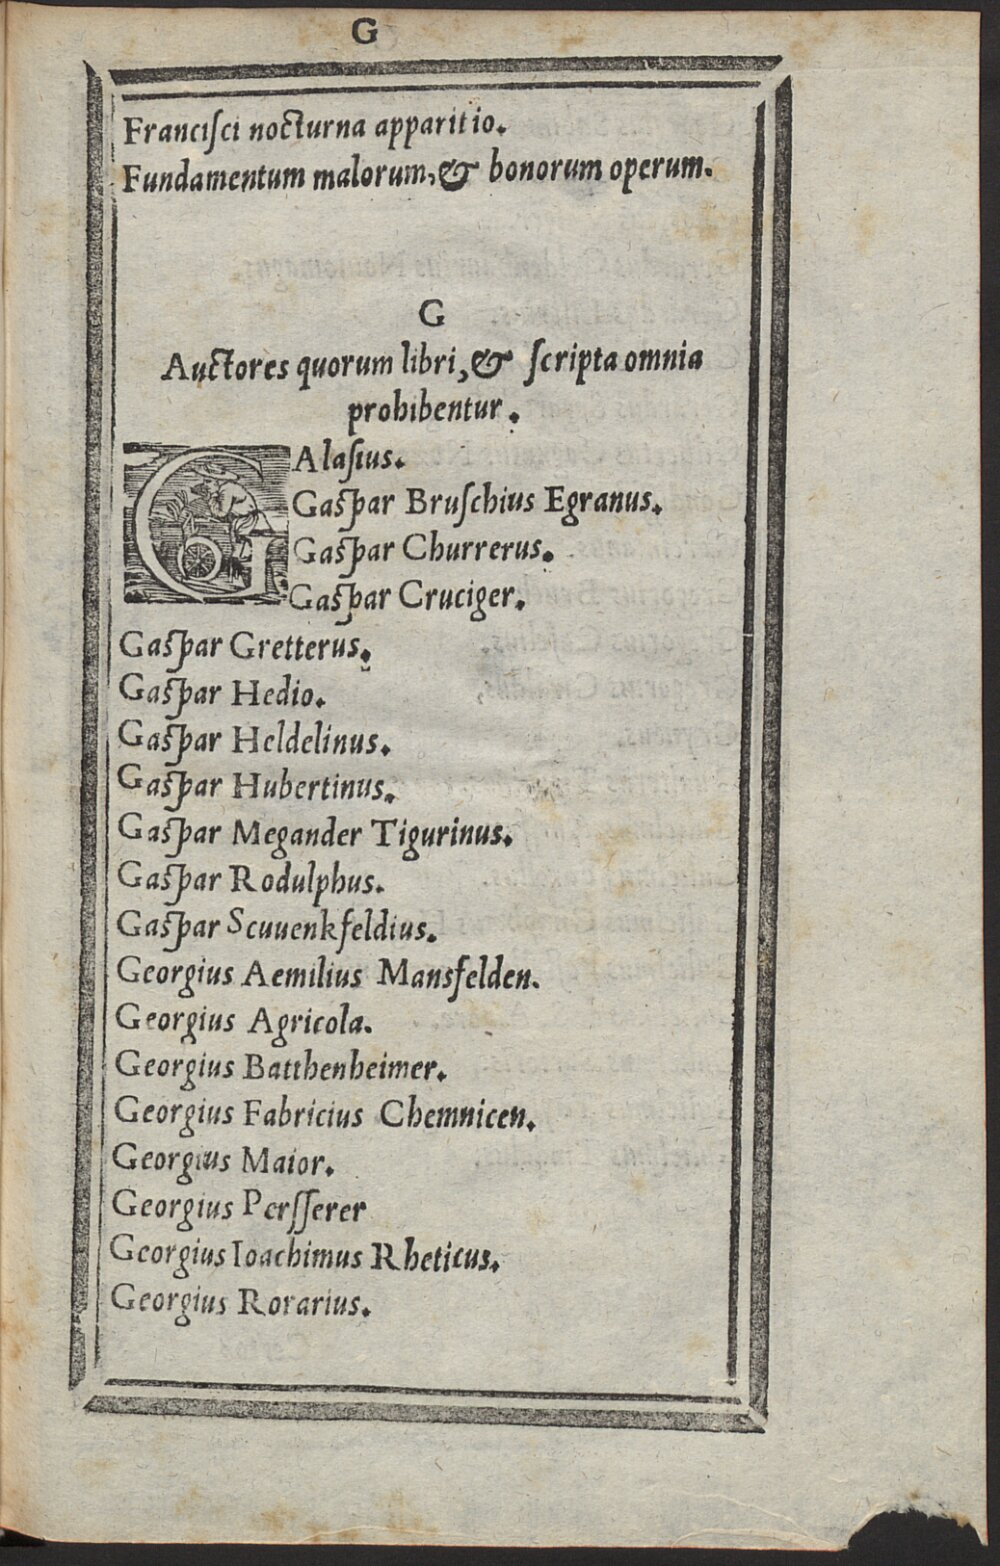 G
Franciſci nocturna apparitio.
Fundamentum malorum, & bonorum operum.
G
Auctores quorum libri, & ſcripta omnia
prohibentur.
GAlaſius.
Gaſpar Bruſchius Egranus.
Gaſpar Churrerus.
Gaſpar Cruciger.
Gaſpar Gretterus.
Gaſpar Hedio.
Gaſpar Heldelinus.
Gaſpar Hubertinus.
Gaſpar Megander Tigurinus.
Gaſpar Rodulphus.
Gaſpar Scuuenkfeldius.
Georgius Aemilius Mansfelden.
Georgius Agricola.
Georgius Batthenheimer.
Georgius Fabricius Chemnicen.
Georgius Maior.
Georgius Perſſerer
Georgius Ioachimus Rheticus.
Georgius Rorarius.